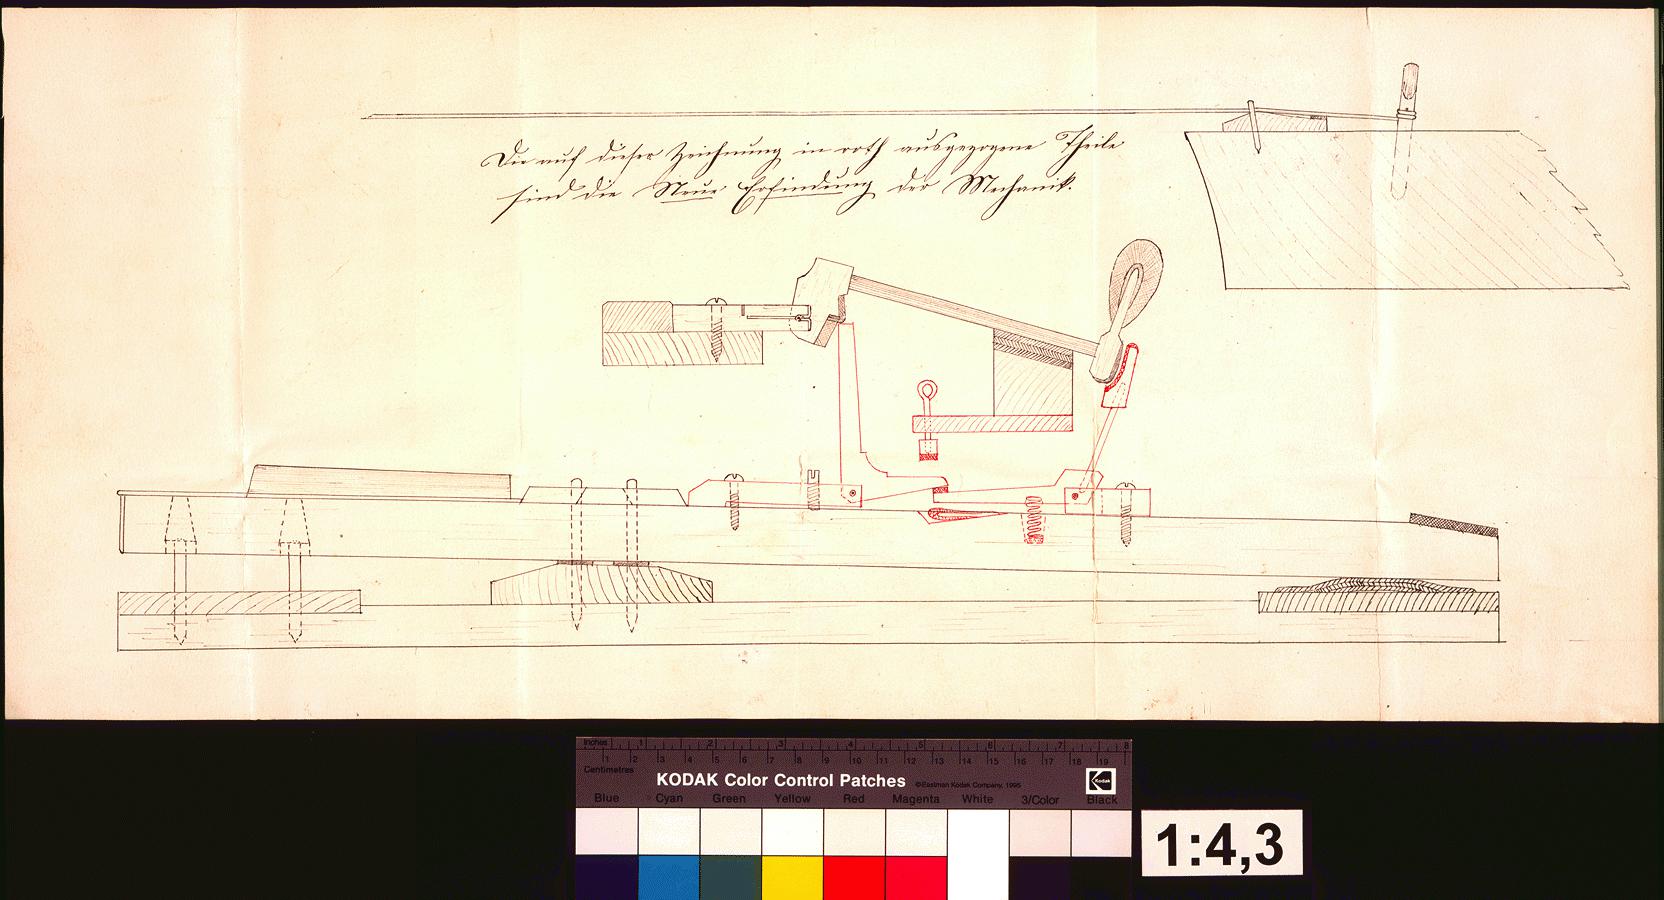 Die auf dieser Zeichnung in roth ausgezogene Theile
sind die Neue Erfindung der Mechanik.
Inches 1 2 3 4 5 6 7 8
1 2 3 4 5 6 7 8 9 10 11 12 13 14 15 16 17 18 19
Centimetres
KODAK Color Control Patches ©Eastman Kodak Company, 1995 Kodak
Blue Cyan Green Yellow Red Magenta White 3/Color Black
1:4,3